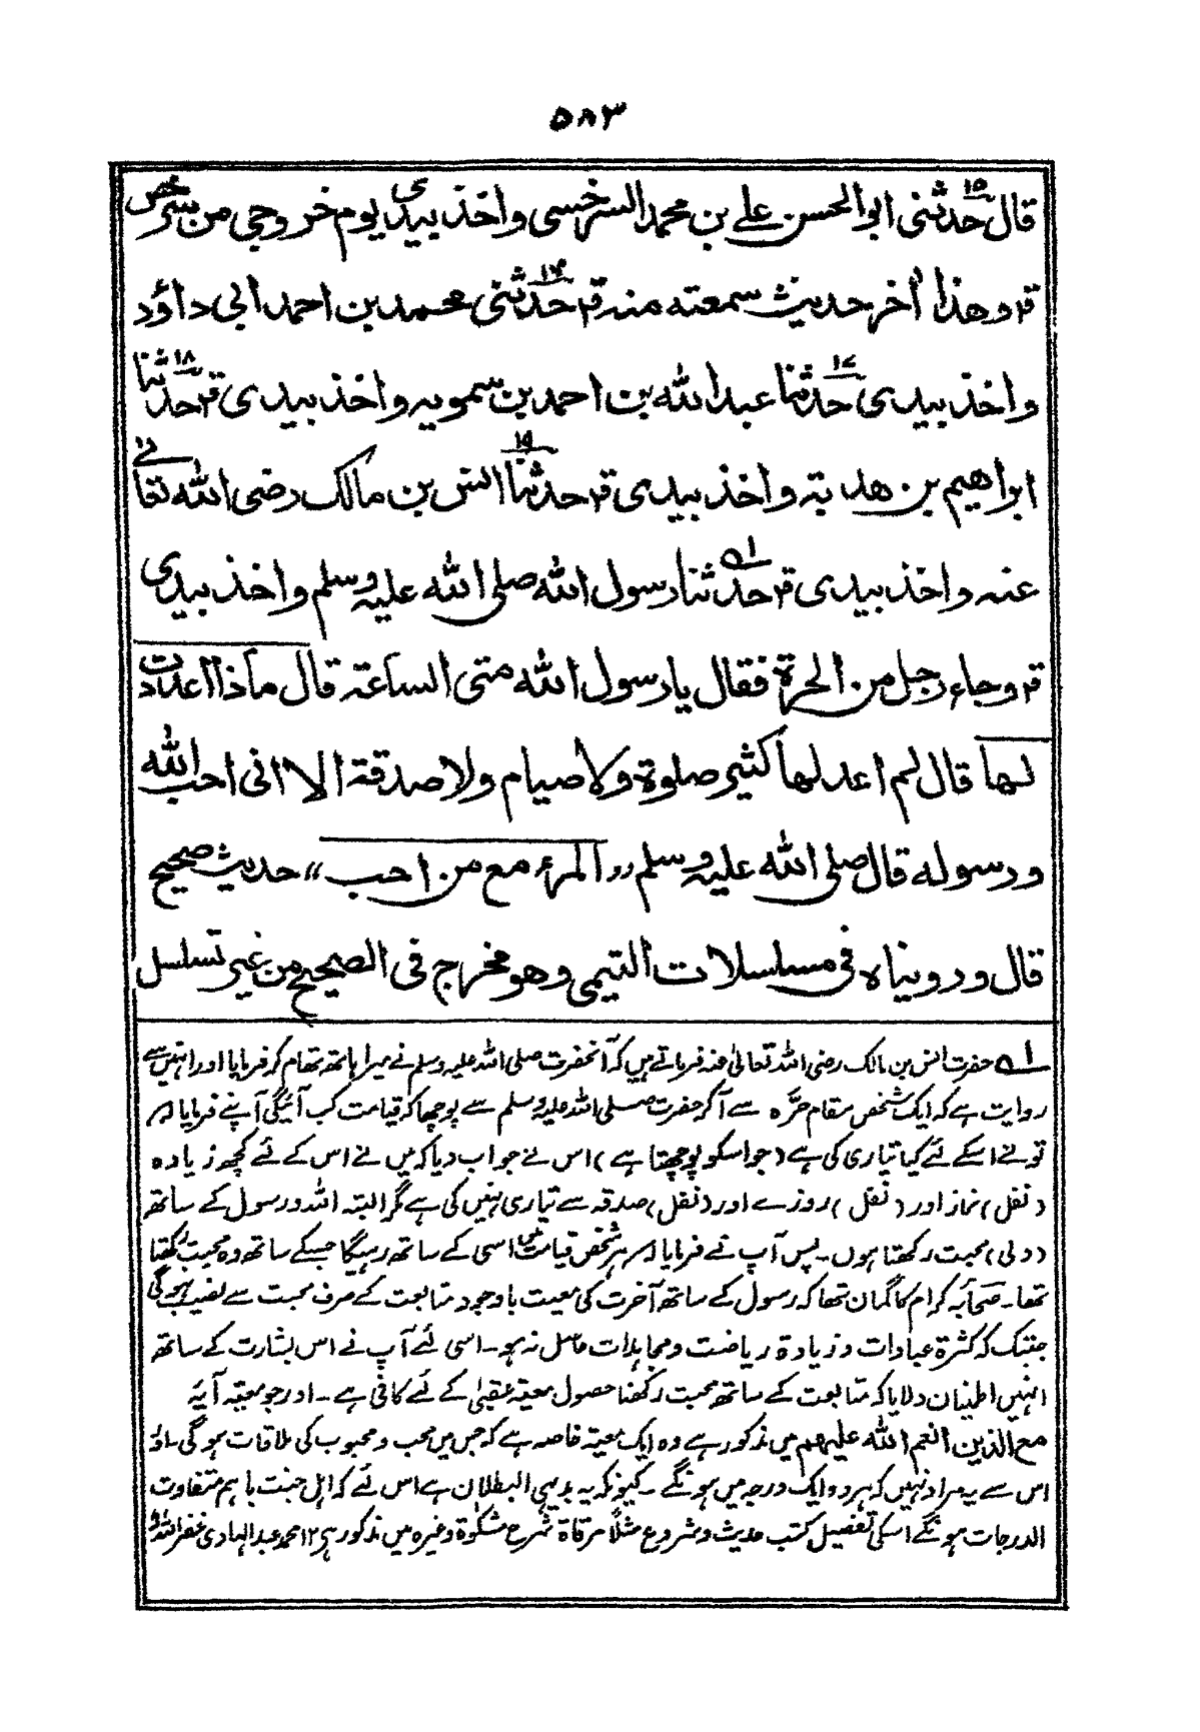 ۵۸۳
قال حدثنی ابو الحسن علے بن محمد السرخسی واخذ بیدی یوم خروجی من سرخس ۱۵
قؔ وھذا اٰخر حدیث سمعتہ منہ قؔ حدثنی محمد بن احمد ابی داؤد ۱۶
واخذ بیدی حدثنا عبد اللہ بن احمد بن سمویہ واخذ بیدی قؔ حدثنا ۱۷ ۱۸
ابراھیم بن ھدبۃ واخذ بیدی قؔ حدثنا انس بن مالک رضی اللہ تعالیٰ ۱۹
عنہ واخذ بیدی قؔ حدثنا رسول اللہ صلی اللہ علیہ وسلم واخذ بیدی ۱ھ
قؔ وجاء رجل من الحرۃ فقال یا رسول اللہ متی الساعۃ قال ماذا اعددت
لھا قال لم اعد لھا کثیر صلوۃ ولا صیام ولا صدقۃ الا انی احب اللہ
ورسولہ قال صلی اللہ علیہ وسلم ,,المرء مع من احب،، حدیث صحیح
قال ورویناہ فی مسلسلات التیمی وھو مخرج فی الصحیح من غیر تسلسل
۱ھ حضرت انس بن مالک رضی اللہ تعالیٰ عنہ فرماتے ہیں کہ آنحضرت صلی اللہ علیہ وسلم نے میرا ہاتھ تھام کر فرمایا اور انہیں سے
روایت ہے کہ ایک شخص مقام حرّہ سے آکر حضرت صلی اللہ علیہ وسلم سے پوچھا کہ قیامت کب آئیگی آپنے فرمایا ,,
تونے اسکے لئے کیا تیاری کی ہے (جو اسکو پوچھتا ہے) اس نے جواب دیا کہ میں نے اس کے لئے کچھ زیادہ
(نفل) نماز اور (نفل) روزے اور (نفل) صدقہ سے تیاری نہیں کی ہے مگر البتہ اللہ ورسول کے ساتھ
(دلی) محبت رکھتا ہوں۔ پس آپ نے فرمایا ,,ہر شخص قیامت میں اسی کے ساتھ رہیگا جسکے ساتھ وہ محبت رکھتا
تھا۔ صحابہ کرام کا گمان تھا کہ رسول کے ساتھ آخرت کی معیت باوجود متابعت کے صرف محبت سے نصیب نہ ہوگی
جبتک کہ کثرۃ عبادات وزیادۃ ریاضت ومجاہدات حاصل نہ ہو۔ اسی لئے آپ نے اس بشارت کے ساتھ
انہیں اطمینان دلایا کہ متابعت کے ساتھ محبت رکھنا حصول معیۃ عقبیٰ کے لئے کافی ہے۔ اور جو معیۃ آیۃ
مع الذین انعم اللہ علیھم میں مذکور ہے وہ ایک معیۃ خاصہ ہے کہ جس میں محب ومحبوب کی ملاقات ہوگی۔ اور
اس سے یہ مراد نہیں کہ ہردو ایک درجہ میں ہونگے۔ کیونکہ یہ بدیہی البطلان ہے اس لئے کہ اہل جنت باہم متفاوت
الدرجات ہونگے اسکی تفصیل کتب حدیث وشروع مثلًا مرقاۃ شرح مشکوٰۃ وغیرہ میں مذکور ہے ۱۲ محمد عبد الہادی غفر اللہ لہ